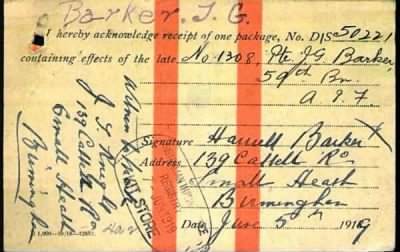 Barker. J. G.
I hereby acknowledge receipt of one package, No. D|S 50221
containing effects of the late No. 1308, Pte. J G Barker,
59th Bn.
A. I. F.
Signature Harriett Barker
Address 139 Cattell Rd
Small Heath
Birmingham
Date Jun 5th 1919
J. G.
139 Cattell Rd
Small Heath
Birmingham
STORE
1919